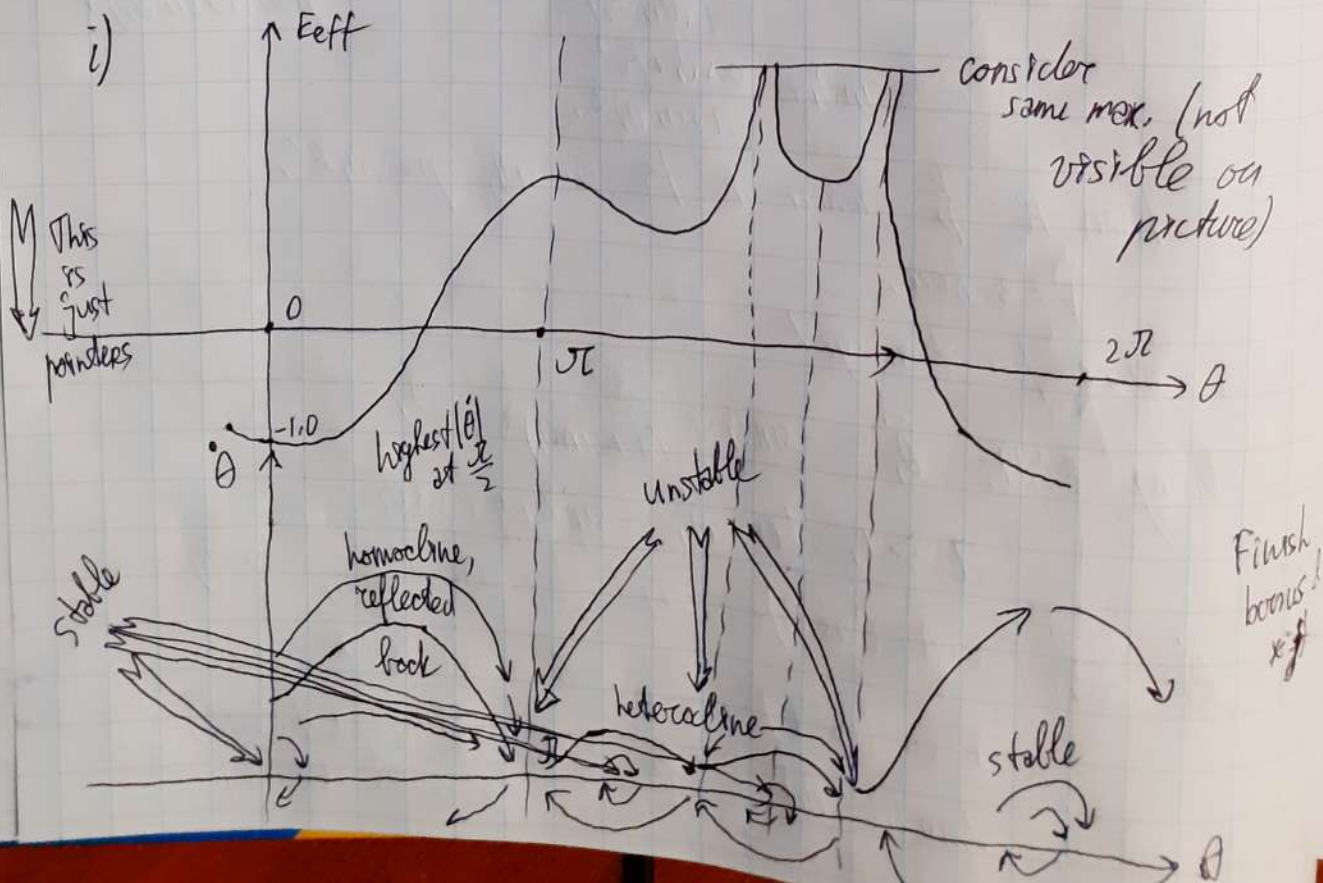 i)
Eeff
consider
same max. (not
visible on
picture)
This
is
just
pointers
0
π
2π
θ
-1.0
θ̇
highest |θ̇|
at π/2
unstable
stable
homocline,
reflected
back
heterocline
stable
Finish
bonus
θ